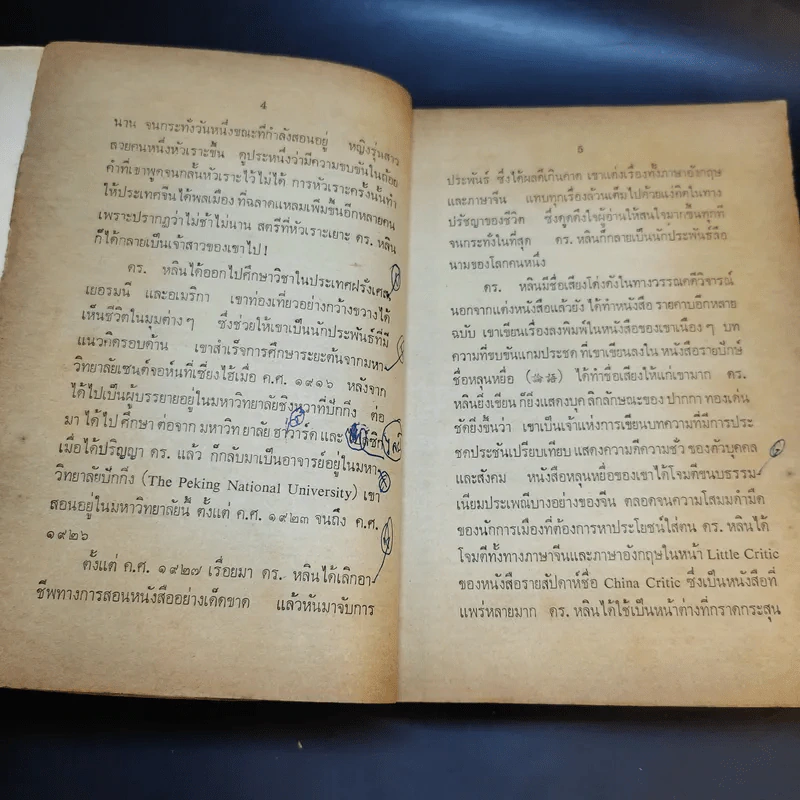 4
นาน จนกระทั่งวันหนึ่งขณะที่กำลังสอนอยู่ หญิงรุ่นสาว
สวยคนหนึ่งหัวเราะขึ้น ดูประหนึ่งว่ามีความขบขันในถ้อย
คำที่เขาพูดจนกลั้นหัวเราะไว้ไม่ได้ การหัวเราะครั้งนั้นทำ
ให้ประเทศจีนได้พลเมือง ที่ฉลาดแหลมเพิ่มขึ้นอีกหลายคน
เพราะปรากฏว่าไม่ช้าไม่นาน สตรีที่หัวเราะเยาะ ดร. หลิน
ก็ได้กลายเป็นเจ้าสาวของเขาไป !
ดร. หลินได้ออกไปศึกษาวิชาในประเทศฝรั่งเศส
เยอรมนี และอเมริกา เขาท่องเที่ยวอย่างกว้างขวางได้
เห็นชีวิตในมุมต่าง ๆ ซึ่งช่วยให้เขาเป็นนักประพันธ์ที่มี
แนวคิดรอบด้าน เขาสำเร็จการศึกษาระยะต้นจากมหา
วิทยาลัยเซนต์จอห์นที่เซี่ยงไฮ้เมื่อ ค.ศ. ๑๙๑๖ หลังจาก
ได้ไปเป็นผู้บรรยายอยู่ในมหาวิทยาลัยชิงหวาที่ปักกิ่ง ต่อ
มา ได้ไป ศึกษา ต่อจาก มหาวิท ยาลัย ฮาวาร์ด และ
เมื่อได้ปริญญา ดร. แล้ว ก็กลับมาเป็นอาจารย์อยู่ในมหา
วิทยาลัยปักกิ่ง (The Peking National University) เขา
สอนอยู่ในมหาวิทยาลัยนี้ ตั้งแต่ ค.ศ. ๑๙๒๓ จนถึง ค.ศ.
๑๙๒๖
ตั้งแต่ ค.ศ. ๑๙๒๗ เรื่อยมา ดร. หลินได้เลิกอา
ชีพทางการสอนหนังสืออย่างเด็ดขาด แล้วหันมาจับการ
5
ประพันธ์ ซึ่งได้ผลดีเกินคาด เขาแต่งเรื่องทั้งภาษาอังกฤษ
และภาษาจีน แทบทุกเรื่องล้วนเต็มไปด้วยแง่คิดในทาง
ปรัชญาของชีวิต ซึ่งดูดดึงใจผู้อ่านให้สนใจมากขึ้นทุกที
จนกระทั่งในที่สุด ดร. หลินก็กลายเป็นนักประพันธ์ลือ
นามของโลกคนหนึ่ง
ดร. หลินมีชื่อเสียงโด่งดังในทางวรรณคดีวิจารณ์
นอกจากแต่งหนังสือแล้วยัง ได้ทำหนังสือ รายคาบอีกหลาย
ฉบับ เขาเขียนเรื่องลงพิมพ์ในหนังสือของเขาเนือง ๆ บท
ความที่ขบขันแกมประชด ที่เขาเขียนลงใน หนังสือรายปักษ์
ชื่อหลุนหยื่อ (論語) ได้ทำชื่อเสียงให้แก่เขามาก ดร.
หลินยิ่งเขียน ก็ยิ่งแสดงบุค ลิกลักษณะของ ปากกา ทองเด่น
ชัดยิ่งขึ้นว่า เขาเป็นเจ้าแห่งการเขียนบทความที่มีการประ
ชดประชันเปรียบเทียบ แสดงความดีความชั่ว ของตัวบุคคล
และสังคม หนังสือหลุนหยื่อของเขาได้โจมตีขนบธรรม-
เนียมประเพณีบางอย่างของจีน ตลอดจนความโสมมดำมืด
ของนักการเมืองที่ต้องการหาประโยชน์ใส่ตน ดร. หลินได้
โจมตีทั้งทางภาษาจีนและภาษาอังกฤษในหน้า Little Critic
ของหนังสือรายสัปดาห์ชื่อ China Critic ซึ่งเป็นหนังสือที่
แพร่หลายมาก ดร. หลินได้ใช้เป็นหน้าต่างที่กราดกระสุน